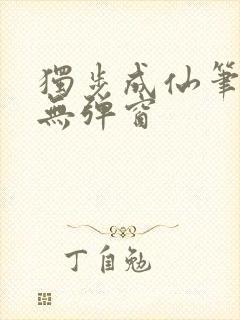 獨步成仙筆
無彈窗
丁自勉